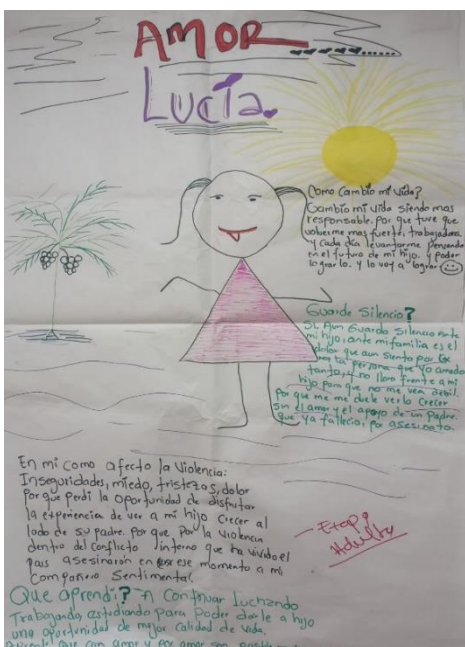 AMOR
Lucía
Como Cambio mi Vida?
Cambio mi vida siendo mas
responsable, Por que tuve que
volverme mas fuerte, trabajadora
y cada día levantarme pensando
en el futuro de mi hijo. y poder
lograrlo. y lo voy a lograr
Guarde Silencio?
Si Aun Guardo Silencio ante
mi hijo, ante mi familia es el
dolor que aun siento por
persona que yo amado
tanto, no lloro frente a mi
hijo para que no me vea debil.
Por que me duele verlo crecer
sin el amor y el apoyo de un padre.
que ya fallecio, por asesinato.
En mi como afecto la Violencia:
Inseguridades, miedo, tristezas, dolor
Por que perdi la oportunidad de disfrutar
la experiencia de ver a mi hijo crecer al
lado de su padre. por que Por la Violencia
dentro del conflicto interno que ha vivido el
pais asesinarón en ese momento a mi
Compañero Sentimental.
Etapa
Adulta
Que aprendí? A Continuar luchando
Trabajando, estudiando para Poder darle a hijo
una oportunidad de mejor calidad de vida.
que con amor y por amor son